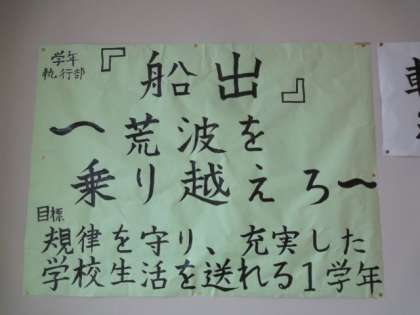 学年
執行部
『船出』
～荒波を
乗り越えろ～
目標
規律を守り、充実した
学校生活を送れる1学年